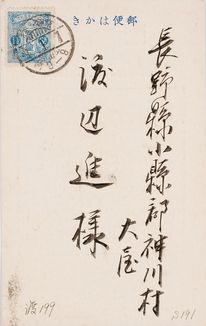 郵便はかき
長野縣小縣郡神川村
大屋
渡辺進様
渡199
S191